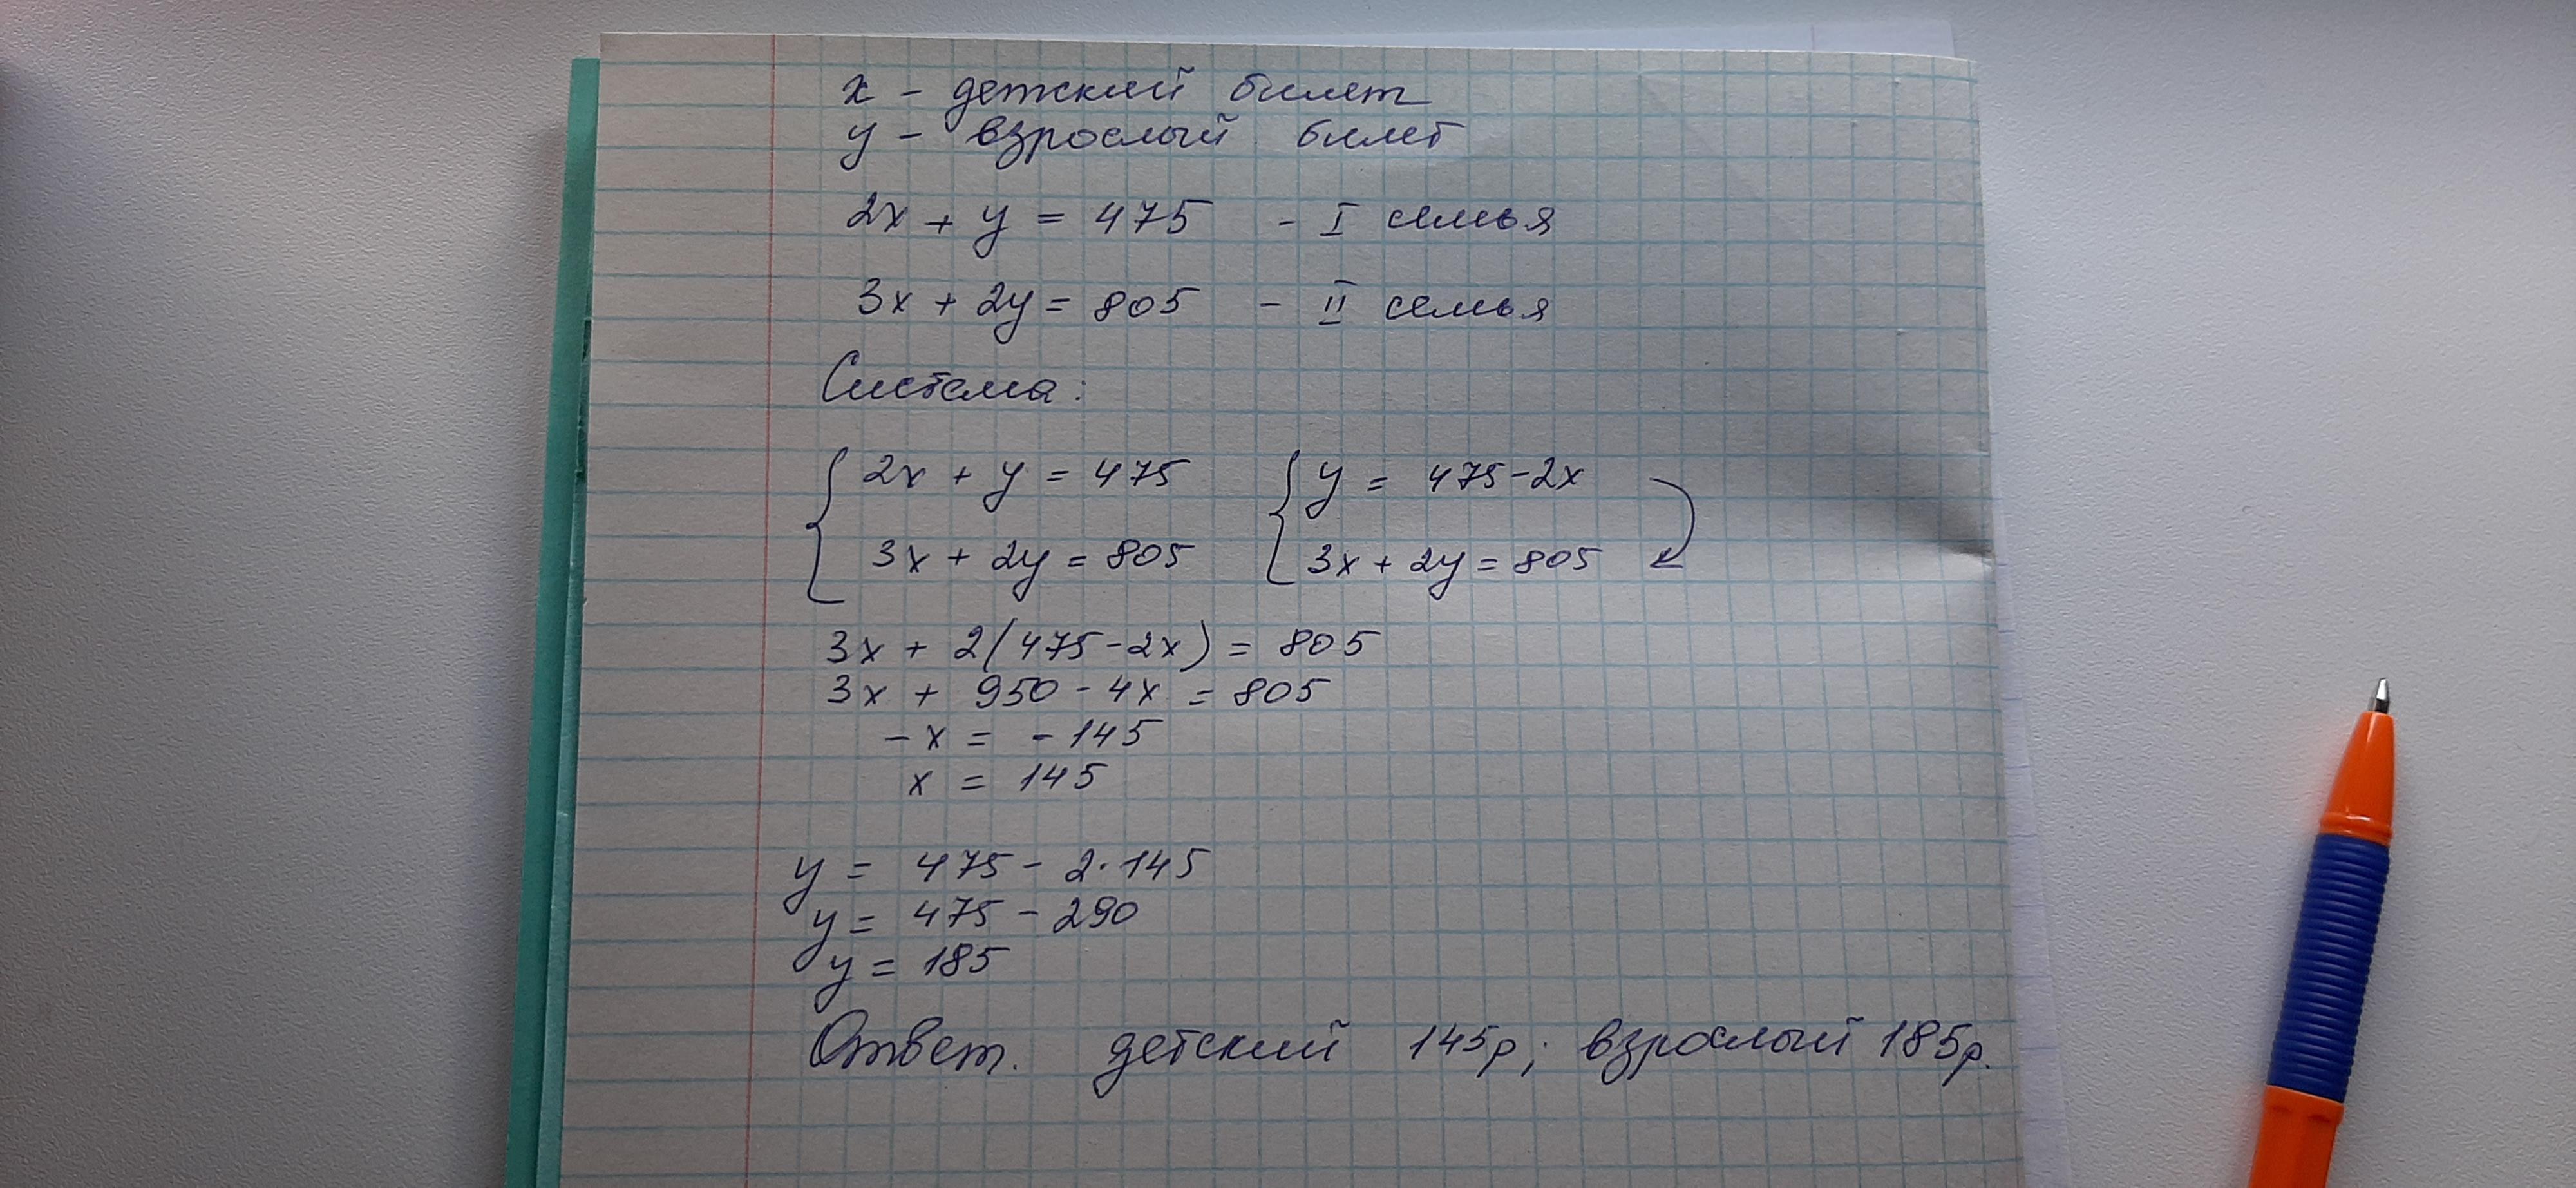 х - детский билет
у - взрослый билет
2х + у = 475 - I семья
3х + 2у = 805 - II семья
Система:
{ 2х + у = 475 { у = 475 - 2х
3х + 2у = 805 3х + 2у = 805
3х + 2(475 - 2х) = 805
3х + 950 - 4х = 805
- х = - 145
х = 145
у = 475 - 2·145
у = 475 - 290
у = 185
Ответ. детский 145р; взрослый 185р.